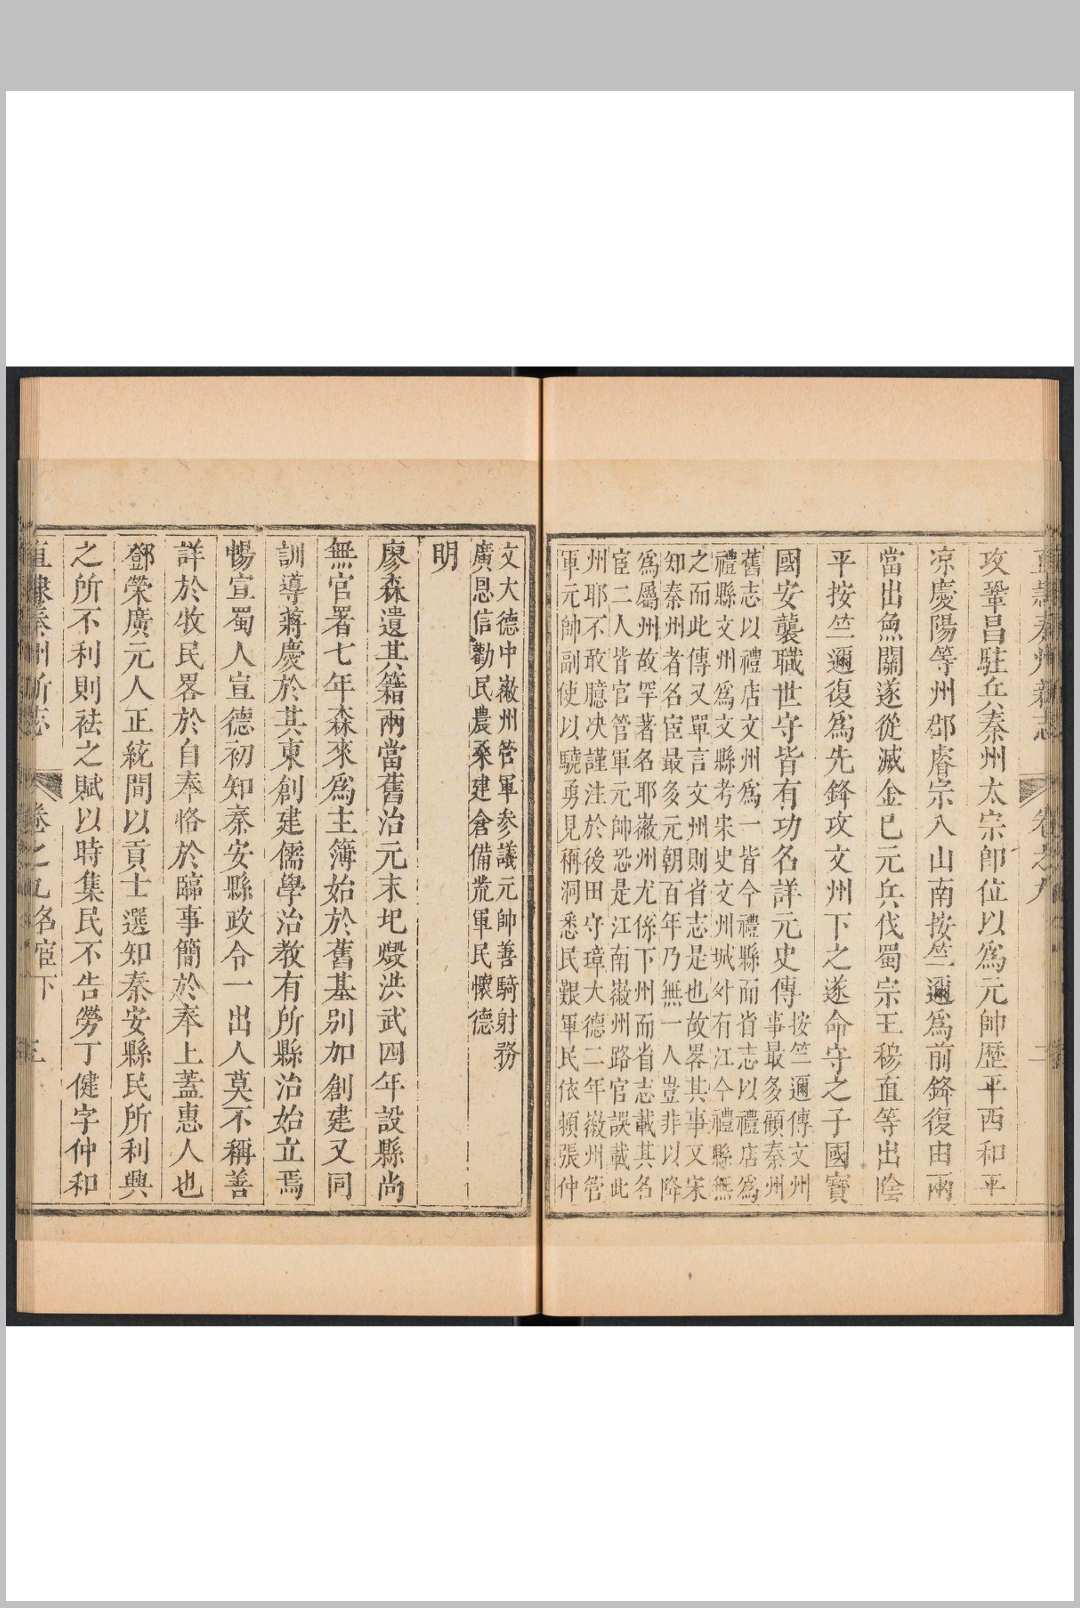 直隸秦州新志 卷之九 二
攻鞏昌駐兵秦州太宗卽位以爲元帥歷平西和平
凉慶陽等州郡睿宗入山南按竺邇爲前鋒復由兩
當出魚關遂從滅金已元兵伐蜀宗王穆直等出陰
平按竺邇復爲先鋒攻文州下之遂命守之子國寶
國安襲職世守皆有功名詳元史傳
按竺邇傳文州
事最多顧秦州
舊志以禮店文州爲一皆今禮縣而省志以禮店爲
禮縣文州爲文縣考宋史文州城外有江今禮縣無
之而此傳又單言文州則省志是也故畧其事又宋
知秦州者名宦最多元朝百年乃無一人豈非以降
爲屬州故罕著名耶徽州尤係下州而省志載其名
宦二人皆官管軍元帥恐是江南徽州路官誤載此
州耶不敢臆决謹注於後田守璋大德二年徽州管
軍元帥副使以驍勇見稱洞悉民艱軍民依賴張仲
文大德中徽州管軍參議元帥善騎射務
廣恩信勸民農桑建倉備荒軍民懷德
明
廖森遺其籍兩當舊治元末圮燬洪武四年設縣尚
無官署七年森來爲主簿始於舊基別加創建又同
訓導蔣慶於其東創建儒學治教有所縣治始立焉
暢宣蜀人宣德初知秦安縣政令一出人莫不稱善
詳於牧民畧於自奉恪於臨事簡於奉上蓋惠人也
鄧榮廣元人正統間以貢士選知秦安縣民所利興
之所不利則祛之賦以時集民不告勞丁健字仲和
直隸秦州新志 卷之九名宦下 三